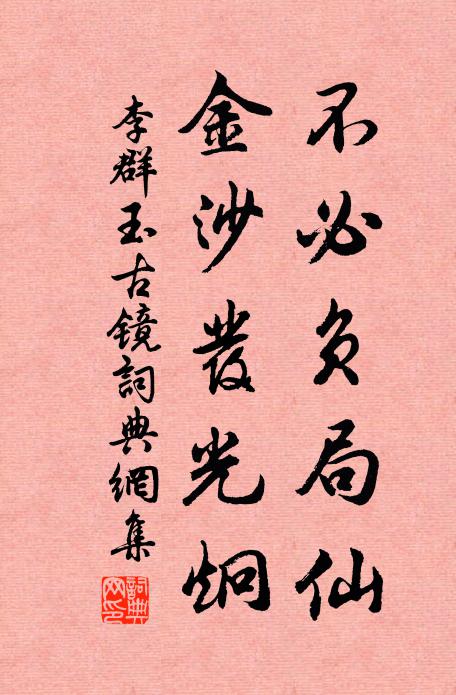 不必负局仙
金沙發光炯
李群玉古镜詞典網集
詞典网印